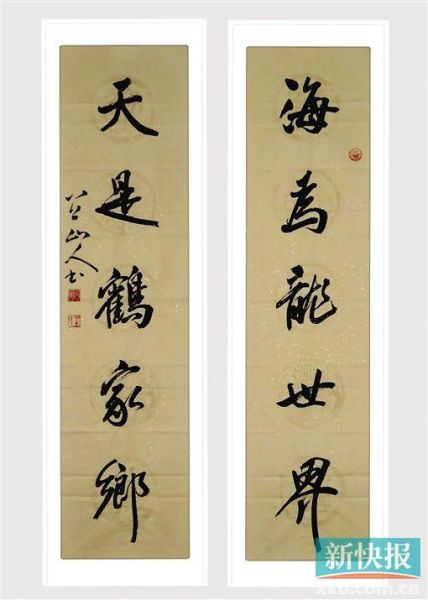 海為龍世界
天是鶴家鄉
山人书
新快报
xkb.com.cn